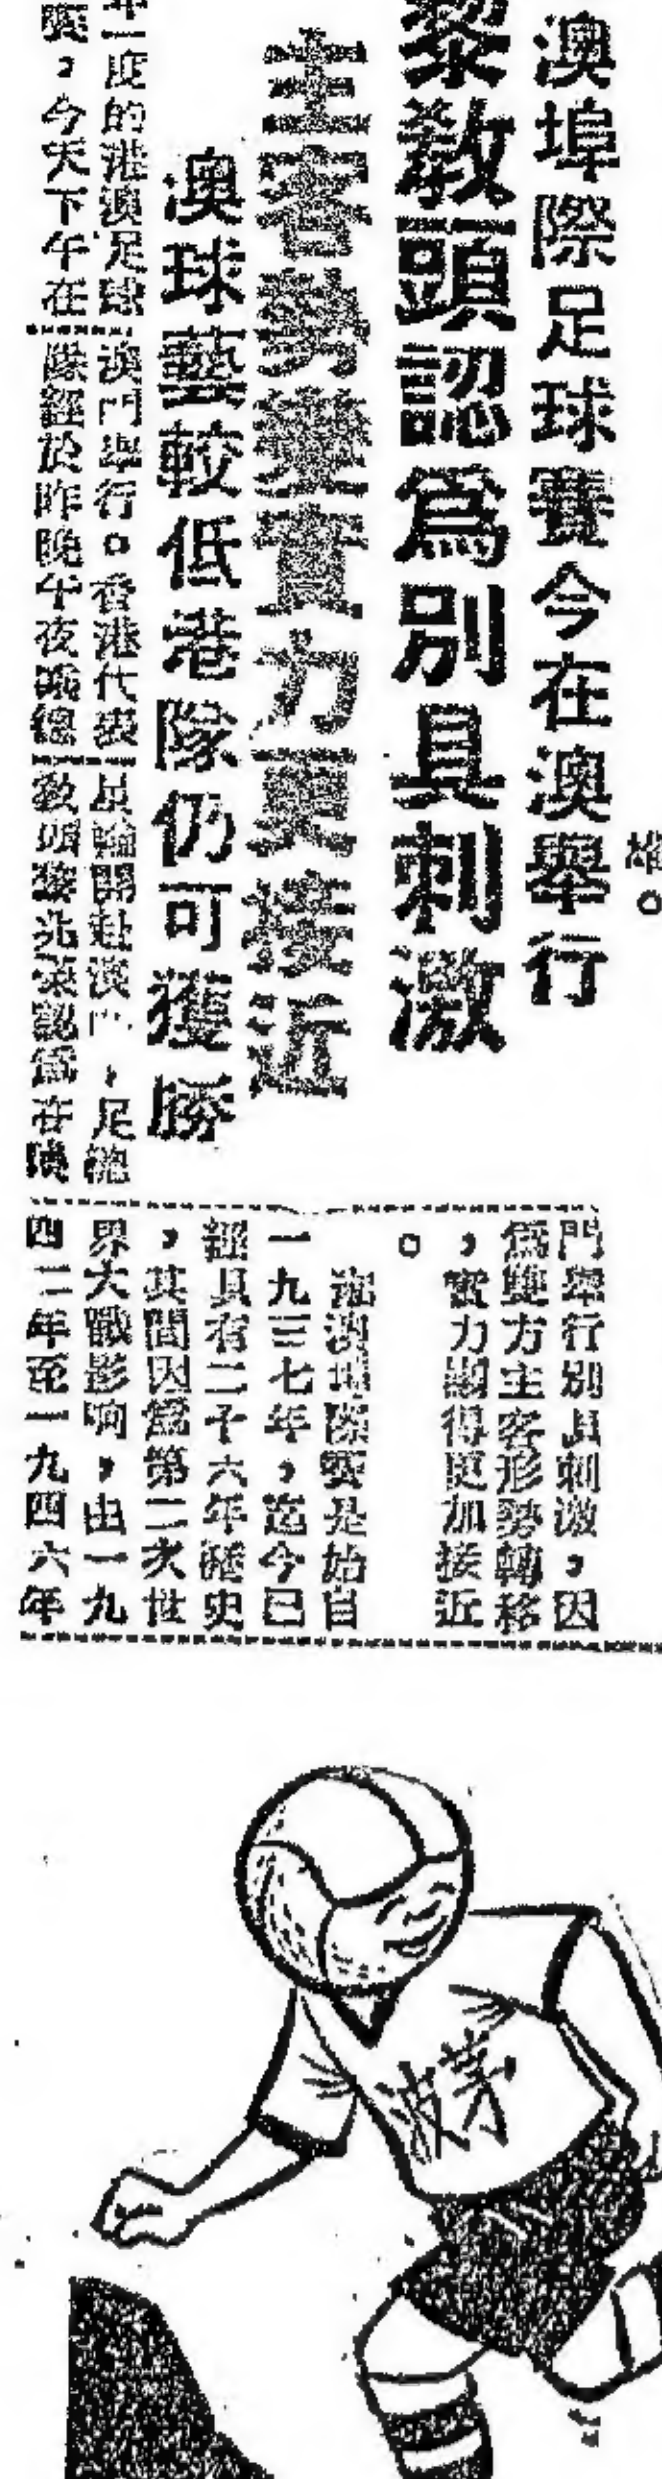 雄。
澳埠際足球賽今在澳舉行
黎教頭認爲別具刺激
主客勢變實力更接近
澳球藝較低港隊仍可獲勝
年一度的港澳足球
,今天下午在
澳門舉行。香港代表
隊經於昨晚午夜乘
輪開赴澳門,足總
教頭黎光榮認爲在澳
門舉行別具刺激,因
爲雙方主客形勢轉移
,實力顯得更加接近
。
港澳埠際賽是始自
一九三七年,迄今已
經具有二十六年歷史
,其間因爲第二次世
界大戰影响,由一九
四二年至一九四六年
茅波